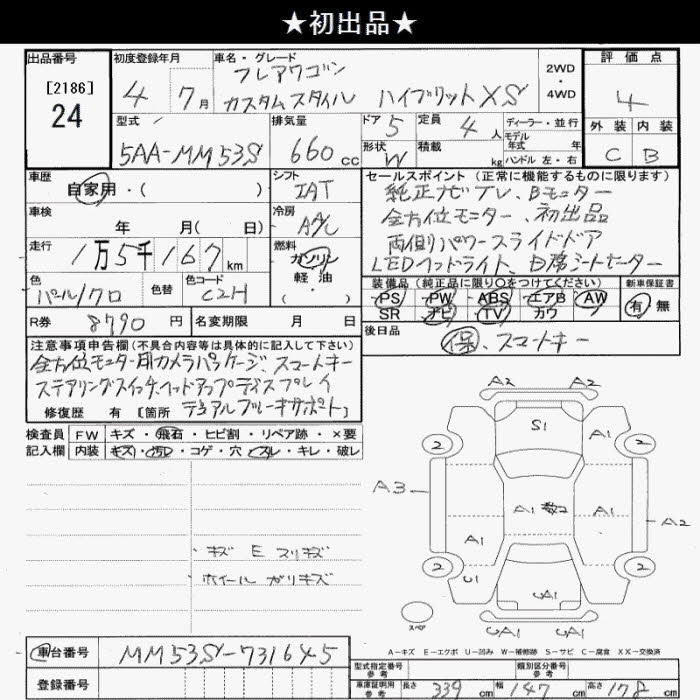 ★初出品★
出品番号
[2186]
24
初度登録年月
4 7月
車名・グレード
フレアワゴン
カスタムスタイル ハイブリットXS
2WD
・
4WD
評価点
4
外装 内装
C B
型式
5AA-MM53S
排気量
660cc
ドア 5
定員 4人
形状 W
積載 kg
ディーラー・並行
モデル年式 年
ハンドル 左・右
車歴
自家用・( )
車検
年 月( 日)
走行
1万5千167km
色
パール/クロ
色替
色コード
C2H
シフト
IAT
冷房
A/C
燃料
ガソリン
軽・油
・( )
セールスポイント (正常に機能するものに限ります)
純正ナビTV、Bモニター
全方位モニター、初出品
両側パワースライドドア
LEDヘッドライト、D席シートヒーター
装備品(純正品に限り○をつけてください)
PS PW ABS エアB AW
SR ナビ TV カワ
新車保証書
有 無
R券 8790円
名変期限 月 日
後日品
保、スマートキー
注意事項申告欄(不具合内容等は具体的に記入して下さい)
全方位モニター用カメラパッケージ、スマートキー
ステアリングスイッチ、ヘッドアップディスプレイ
修復歴 有 [箇所 デュアルブレーキサポート]
検査員記入欄
FW キズ・飛石・ヒビ割・リペア跡・×要
内装 キズ・汚レ・コゲ・穴・スレ・キレ・破レ
・キズ E スリキズ
・ホイール ガリキズ
A2 A2
S1
2 A1 2
A3 A1 A1 A2
A1
2 U1 2
UA1
UA1 UA1
スペア
A-キズ E-エクボ U-凹み W-補修跡 S-サビ C-腐食 XX-交換済
車台番号 MM53S-731645
登録番号
型式指定番号 参考
類別区分番号 参考
車庫証明用 参考 長さ 339cm 幅 147cm 高さ 178cm